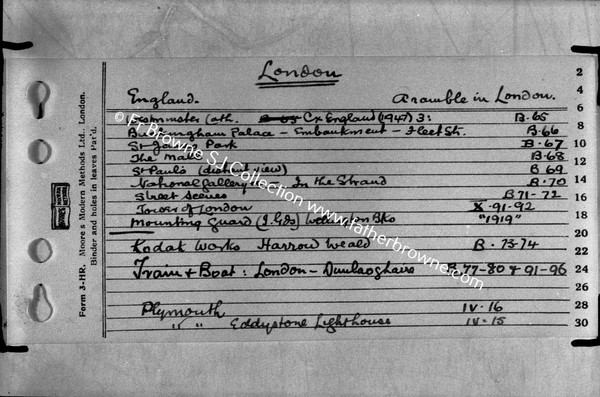 London
England. A ramble in London.
Westminster Cath. Cx England (1947) 3: B.65
Buckingham Palace - Embankment - Fleet St. B.66
St James Park B.67
The Mall B.68
St Pauls (distant view) B 69
National Gallery In the Strand B.70
Street Scenes B 71-72
Tower of London X.91-92
Mounting Guard (I. Gds) Wellington Bks "1919"
Kodak Works Harrow Weald B.73-74
Train & Boat: London - Dunlaoghaire B.77-80 & 91-96
Plymouth IV.16
" " Eddystone Lighthouse IV.15
2
4
6
8
10
12
14
16
18
20
22
24
26
28
30
Form 3-HR. Moore's Modern Methods Ltd. London.
Binder and holes in leaves Pat'd.
© Fr Browne S.J. Collection www.fatherbrowne.com